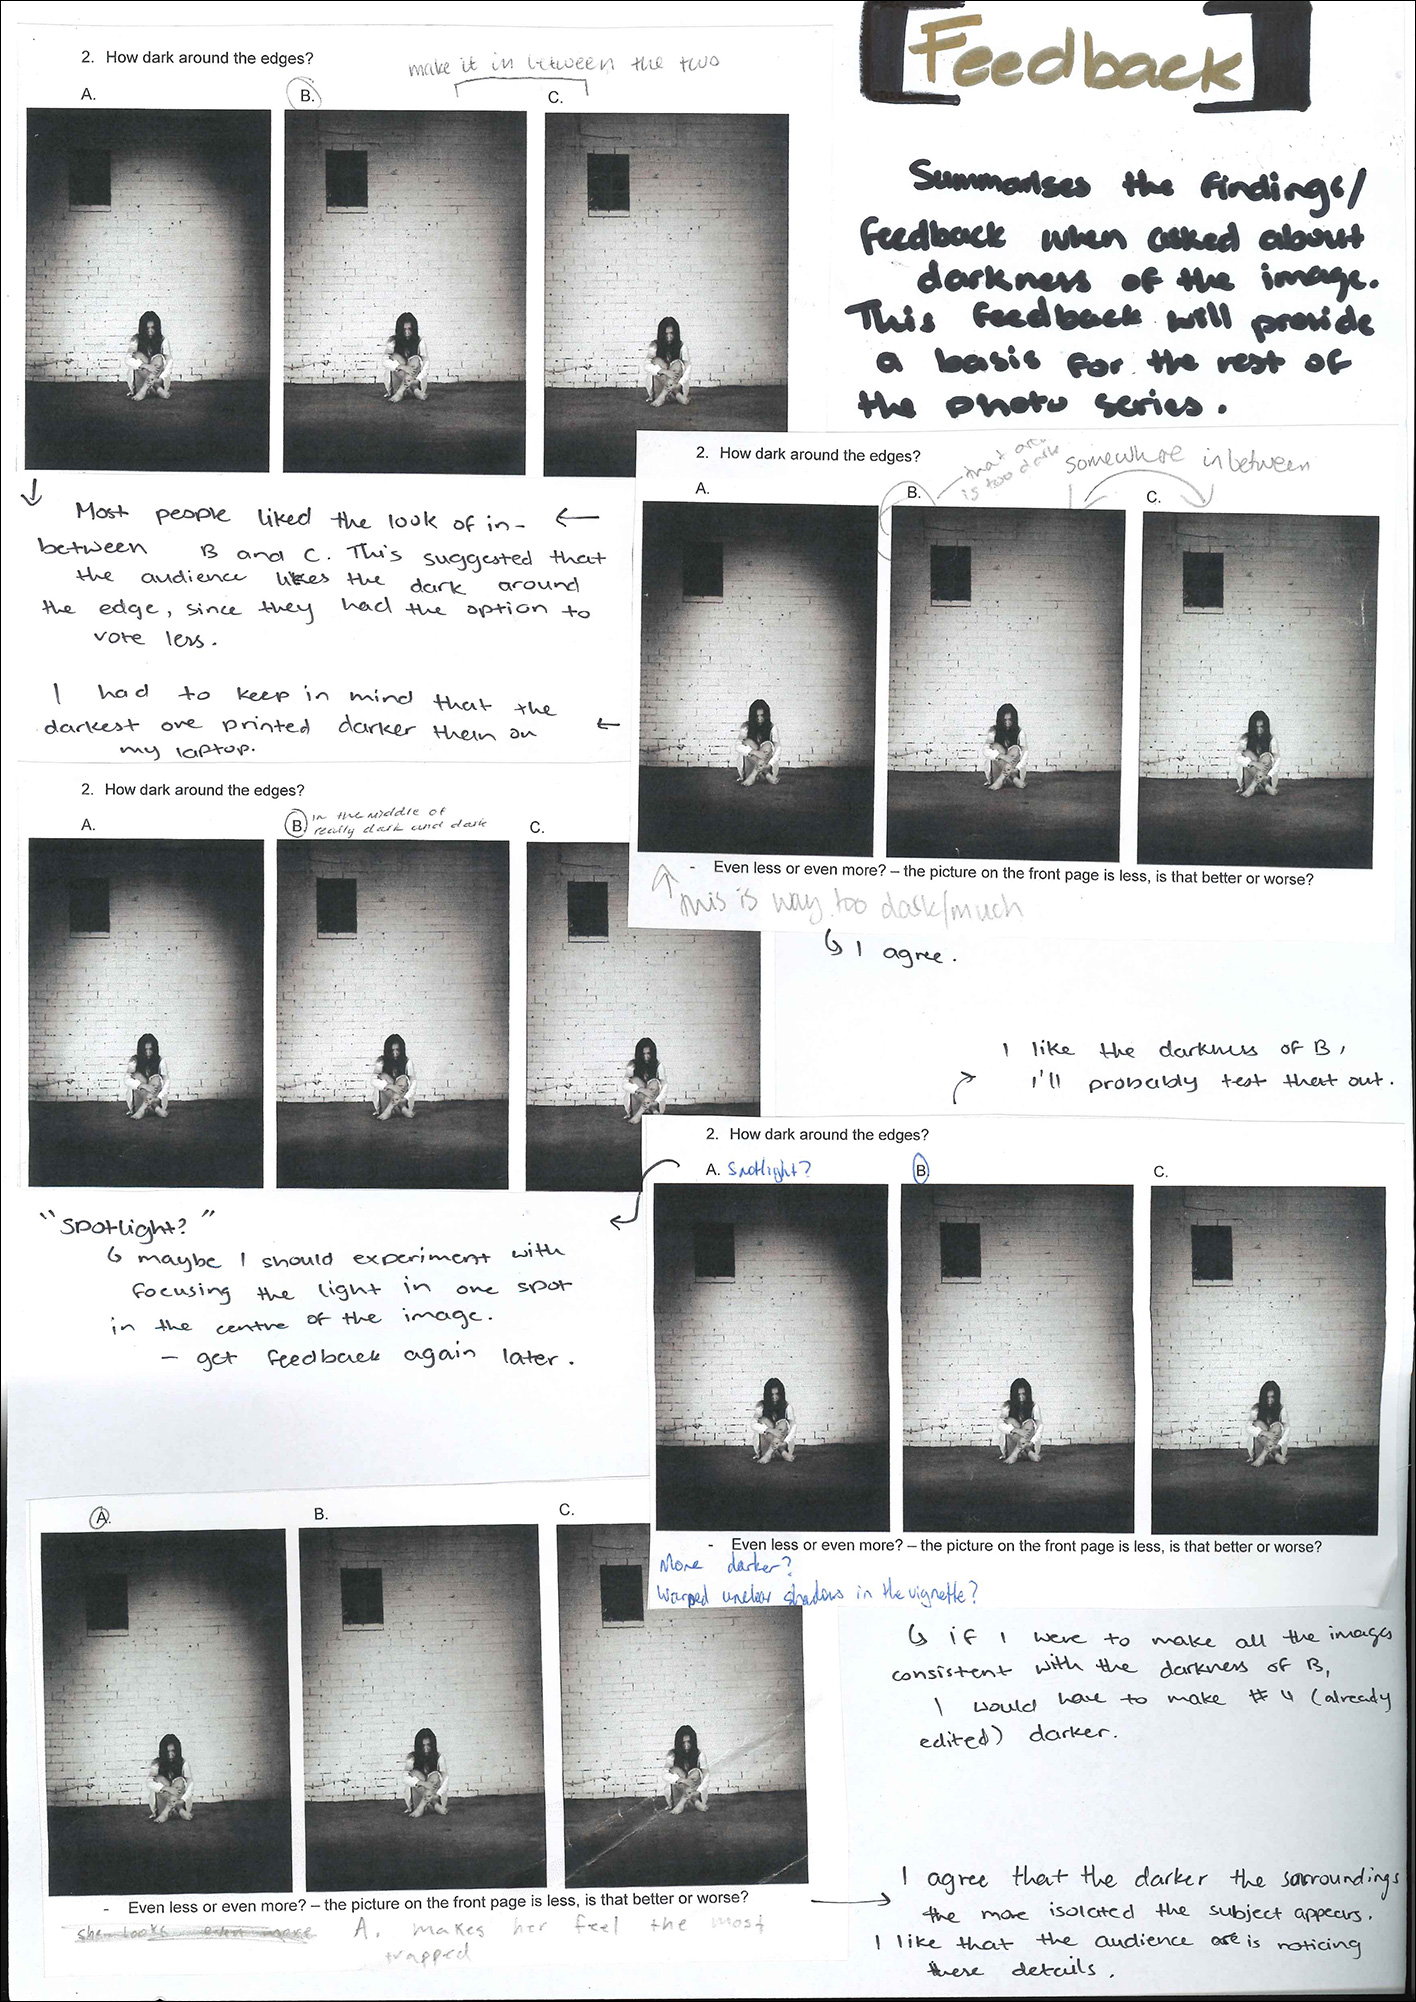 [Feedback]
Summarises the findings/
feedback when asked about
darkness of the image.
This feedback will provide
a basis for the rest of
the photo series.
2. How dark around the edges?
make it in between the two
A.
B.
C.
Most people liked the look of in-
between B and C. This suggested that
the audience likes the dark around
the edge, since they had the option to
vote less.
I had to keep in mind that the
darkest one printed darker then on
my laptop.
2. How dark around the edges?
that area
is too dark
somewhere inbetween
A.
B.
C.
- Even less or even more? – the picture on the front page is less, is that better or worse?
This is way too dark/much
I agree.
2. How dark around the edges?
A.
B.
in the middle of
really dark and dark
C.
I like the darkness of B,
I'll probably test that out.
2. How dark around the edges?
A. Spotlight?
B.
C.
"Spotlight?"
maybe I should experiment with
focusing the light in one spot
in the centre of the image.
- get feedback again later.
- Even less or even more? – the picture on the front page is less, is that better or worse?
More darker?
Warped unclear shadows in the vignette?
if I were to make all the images
consistent with the darkness of B,
I would have to make #4 (already
edited) darker.
A.
B.
C.
- Even less or even more? – the picture on the front page is less, is that better or worse?
she looks even more
A. makes her feel the most
trapped
I agree that the darker the surroundings
the more isolated the subject appears.
I like that the audience is noticing
these details.